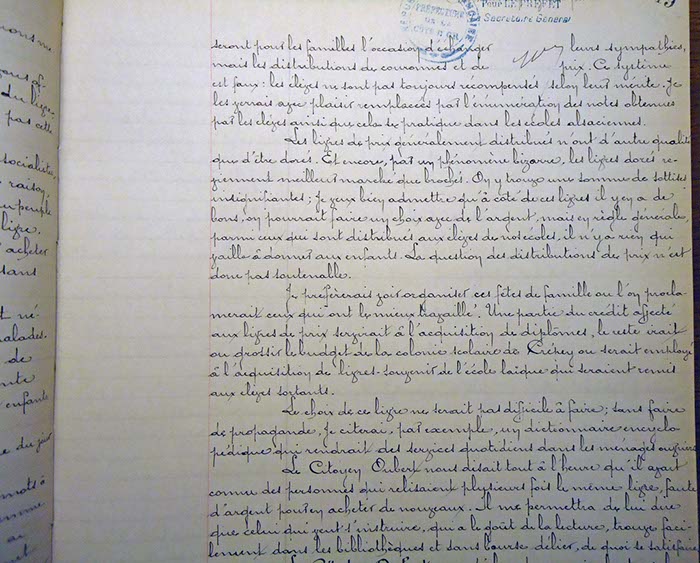 Pour LE PREFET
Secrétaire Général
PRÉFECTURE
DE LA
CÔTE D'OR
seront pour les familles l'occasion d'échanger leurs sympathies,
mais les distributions de couronnes et de prix. Ce système
est faux: les élèves ne sont pas toujours récompensés selon leur mérite. Je
les verrais avec plaisir remplacées par l'énumération des notes obtenues
par les élèves ainsi que cela se pratique dans les écoles alsaciennes.
Les livres de prix généralement distribués n'ont d'autre qualité
que d'être dorés. Et encore, par un phénomène bizarre, les livres dorés re-
viennent meilleur marché que brochés. On y trouve une somme de sottises
insignifiantes; je veux bien admettre qu'à côté de ces livres il y en a de
bons, on pourrait faire un choix avec de l'argent, mais en règle générale,
parmi ceux qui sont distribués aux élèves de nos écoles, il n'y a rien qui
vaille à donner aux enfants. La question des distributions de prix n'est
donc pas soutenable.
Je préfèrerais voir organiser ces fêtes de famille ou l'on procla-
merait ceux qui ont le mieux travaillé. Une partie du crédit affecté
aux livres de prix servirait à l'acquisition de diplômes, le reste irait
ou grossir le budget de la colonie scolaire de Crépey ou serait employé
à l'acquisition de livres-souvenir de l'école laïque qui seraient remis
aux élèves sortants.
Le choix de ce livre ne serait pas difficile à faire; sans faire
de propagande, je citerai, par exemple, un dictionnaire encyclo-
pédique qui rendrait des services quotidiens dans les ménages ouvriers
Le Citoyen Oubert nous disait tout à l'heure qu'il avait
connu des personnes qui relisaient plusieurs fois le même livre, faute
d'argent pour en acheter de nouveaux. Il me permettra de lui dire
que celui qui veut s'instruire, qui a le goût de la lecture, trouve faci-
lement dans les bibliothèques et sans bourse délier, de quoi se satisfaire
socialiste,
raison,
peuple
livre.
acheter
sans
né-
malades.
de
enfants
mots à